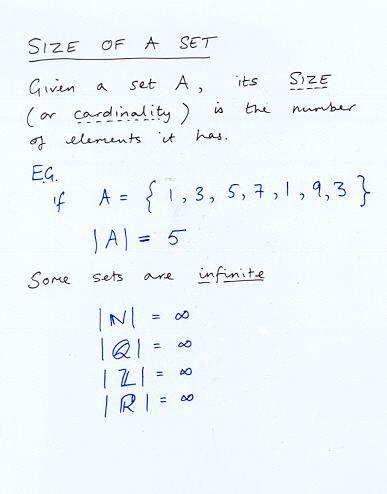 SIZE OF A SET
Given a set A, its SIZE
(or cardinality) is the number
of elements it has.
E.G.
if A = { 1, 3, 5, 7, 1, 9, 3 }
|A| = 5
Some sets are infinite
|ℕ| = ∞
|ℚ| = ∞
|ℤ| = ∞
|ℝ| = ∞